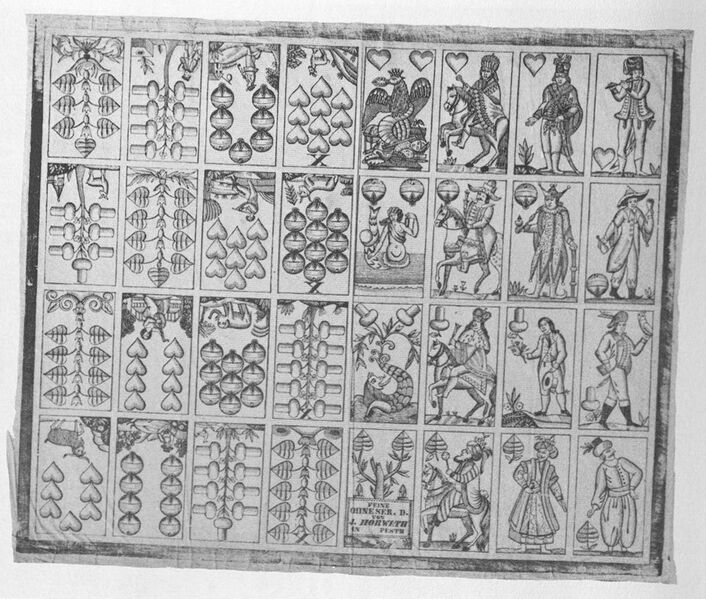 FEINE
OHNESER. D.
VON
J. HORWATH
IN PESTH
X
X
X
X